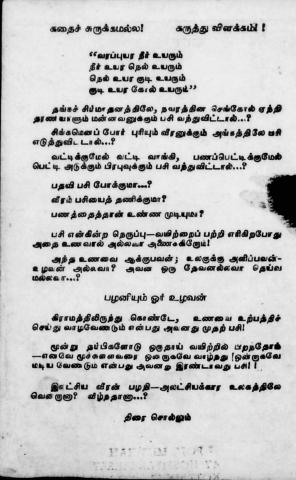 கதைச் சுருக்கமல்ல! கருத்து விளக்கம்! !
"வரப்புயர நீர் உயரும்
நீர் உயர நெல் உயரும்
நெல் உயர குடி உயரும்
குடி உயர கோல் உயரும்"
தங்கச் சிம்மாதனத்திலே, நவரத்தின செங்கோல் ஏந்தி
தரணியாளும் மன்னவனுக்கும் பசி வந்துவிட்டால்...?
சிங்கமெனப் போர் புரியும் வீரனுக்கும் அங்கத்திலே பசி
எடுத்துவிட்டால்...?
வட்டிக்குமேல் வட்டி வாங்கி, பணப்பெட்டிக்குமேல்
பெட்டி அடுக்கும் பிரபுவுக்கும் பசி வந்துவிட்டால்...?
பதவி பசி போக்குமா...?
வீரம் பசியைத் தணிக்குமா?
பணத்தைத்தான் உண்ண முடியுமா?
பசி என்கின்ற நெருப்பு—வயிற்றைப் பற்றி எரிகிறபோது
அதை உணவால் அல்லவா அணைக்கிறோம்!
அந்த உணவை ஆக்குபவன்; உலகுக்கு அளிப்பவன்-
உழவன் அல்லவா? அவன் ஒரு தேவனல்லவா தெய்வ
மல்லவா...?
பழனியும் ஓர் உழவன்
கிராமத்திலிருந்து கொண்டே, உணவை உற்பத்திச்
செய்து வாழவேண்டும் என்பது அவனது முதற் பசி!
மூன்று தம்பிகளோடு ஒருதாய் வயிற்றில் பிறந்தோம்
—எனவே மூச்சுள்ளவரை ஒன்றாகவே வாழ்நது ஒன்றாகவே
மடிய வேண்டும் என்பது அவனது இரண்டாவது பசி!!
இலட்சிய வீரன் பழநி—அலட்சியக்கார உலகத்திலே
வென்றானா? வீழ்ந்தானா...?
திரை சொல்லும்